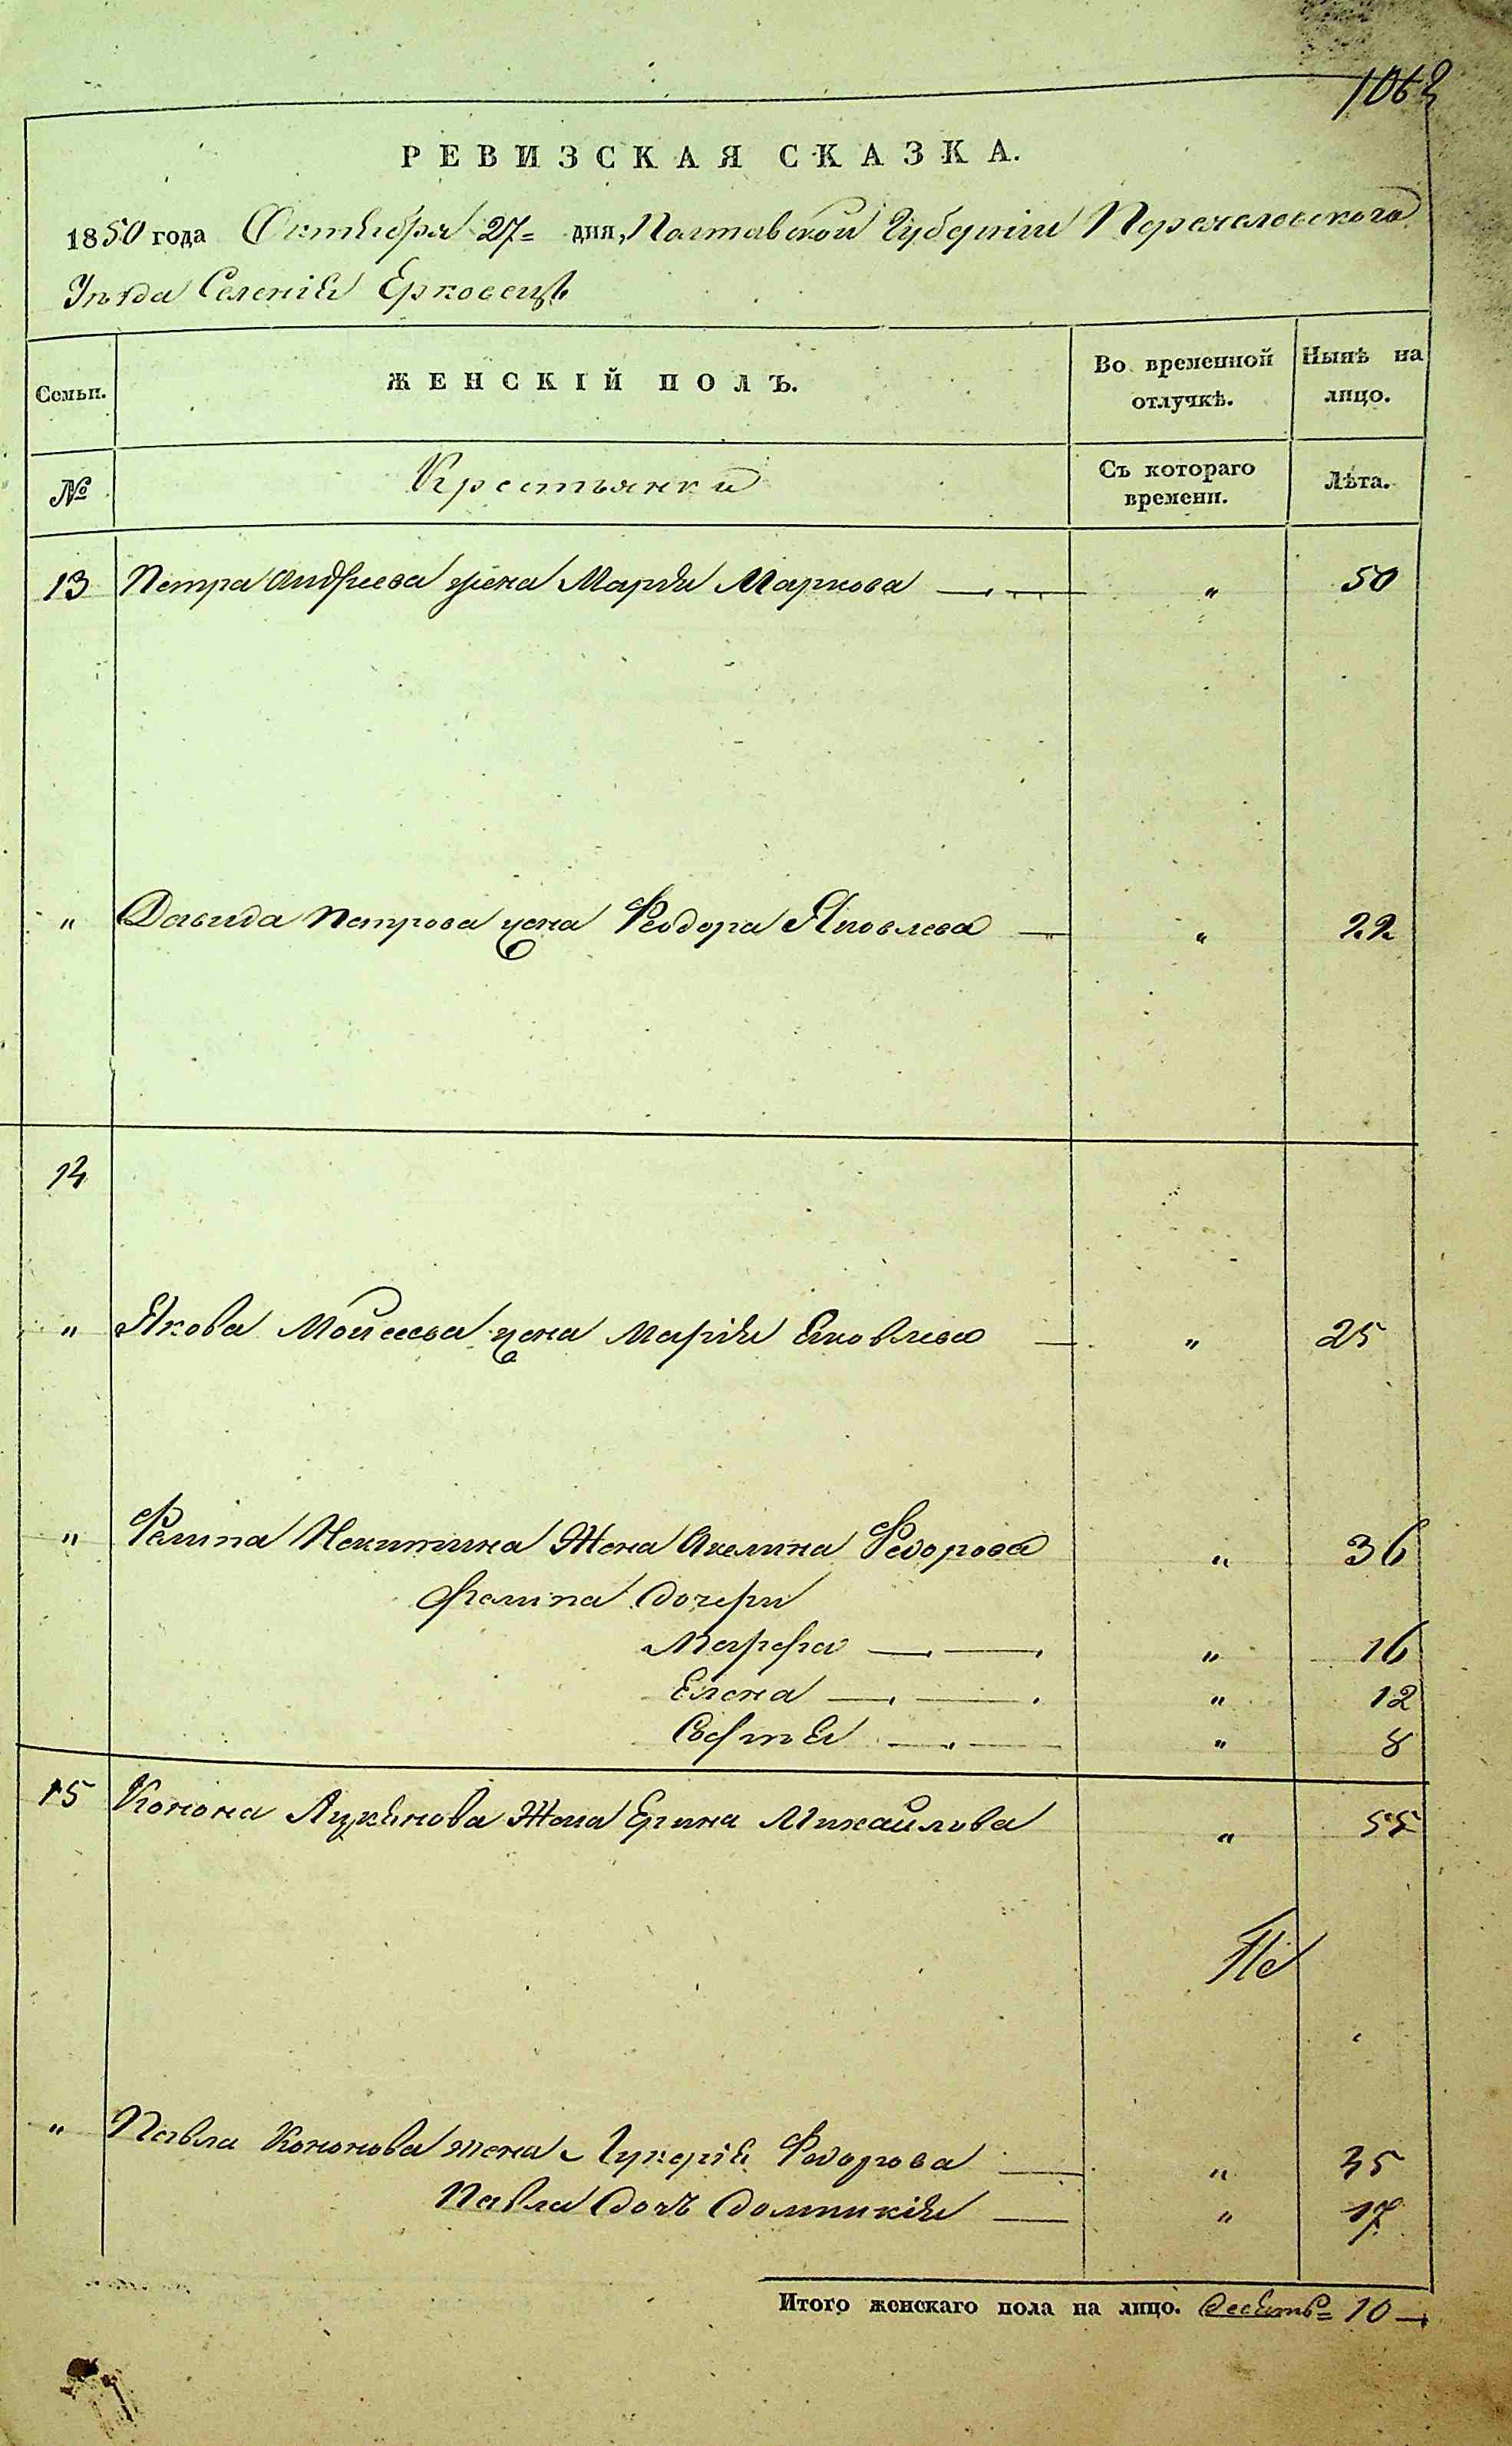 1062
РЕВИЗСКАЯ СКАЗКА.
1850 года Октября 27 = дня, Полтавской Губерніи Переяславского
Уезда Селенія Ерковецъ
Семьи. ЖЕНСКІЙ ПОЛЪ. Во временной отлучкѣ. Нынѣ на лицо.
№ Крестьянки Съ котораго времени. Лѣта.
13 Петра Андреева жена Марія Маркова — „ 50
„ Давида Петрова жена Феодора Яковлева — „ 22
14
„ Якова Моисеева жена Марія Яковлева — „ 25
„ Филипа Никитина Жена Акелина Федорова „ 36
Филипа дочери
Марфа — „ 16
Елена — „ 12
Софія — „ 8
15 Конона Жена Ерина Михайлова „ 55
„ Павла Кононова жена Лукерія Федорова — „ 35
Павла дочь Домникія — „ 17
Итого женскаго пола на лицо. десять = 10 —